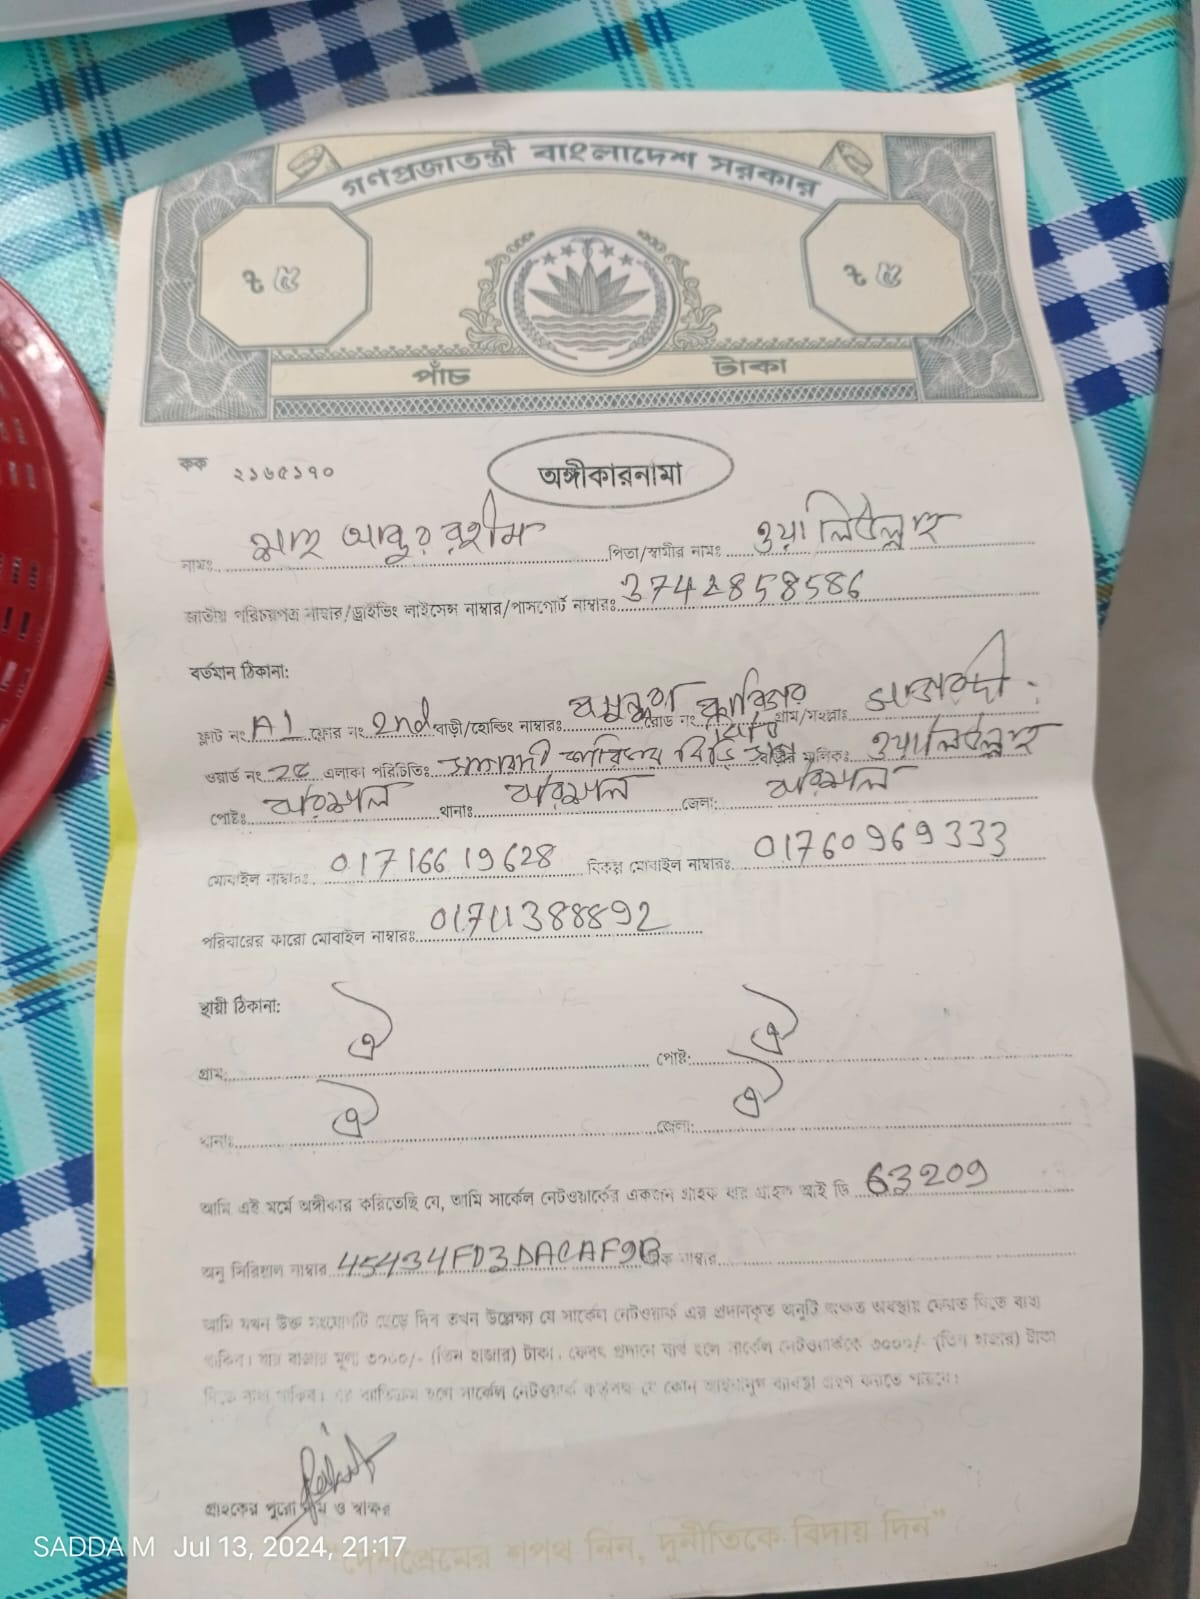 গণপ্রজাতন্ত্রী বাংলাদেশ সরকার
৳ ৫ ৳ ৫
পাঁচ টাকা
কক ২১৬৫১৭০
অঙ্গীকারনামা
নামঃ আবুর রহীম পিতা/স্বামীর নামঃ ওয়ালিউল্লাহ
জাতীয় পরিচয়পত্র নাম্বার/ড্রাইভিং লাইসেন্স নাম্বার/পাসপোর্ট নাম্বারঃ 3742858586
বর্তমান ঠিকানা:
ফ্লাট নং A1 ফ্লোর নং 2nd বাড়ী/হোল্ডিং নাম্বারঃ রোড নং গ্রাম/মহল্লাঃ
ওয়ার্ড নং এলাকা পরিচিতিঃ মালিকঃ ওয়ালিউল্লাহ
পোষ্টঃ বরিশাল থানাঃ বরিশাল জেলা: বরিশাল
মোবাইল নাম্বারঃ 01716619628 বিকল্প মোবাইল নাম্বারঃ 01760969333
পরিবারের কারো মোবাইল নাম্বারঃ 01711388892
স্থায়ী ঠিকানা:
গ্রাম: ঐ পোষ্ট: ঐ
থানাঃ ঐ জেলা: ঐ
আমি এই মর্মে অঙ্গীকার করিতেছি যে, আমি সার্কেল নেটওয়ার্কের একজন গ্রাহক যার গ্রাহক আই ডি 63209
অনু সিরিয়াল নাম্বার 45434FD3DACAF9B নাম্বার
আমি যখন উক্ত সংযোগটি ছেড়ে দিব তখন উল্লেক্ষ্য যে সার্কেল নেটওয়ার্ক এর প্রদানকৃত অনুটি অক্ষত অবস্থায় ফেরত দিতে বাধ্য
থাকিব। যার বাজার মূল্য ৩০০০/- (তিন হাজার) টাকা। ফেরৎ প্রদানে ব্যর্থ হলে সার্কেল নেটওয়ার্ককে ৩০০০/- (তিন হাজার) টাকা
দিতে বাধ্য থাকিব। এর ব্যতিক্রম হলে সার্কেল নেটওয়ার্ক কর্তৃপক্ষ যে কোন আইনানুগ ব্যবস্থা গ্রহণ করতে পারবে।
গ্রাহকের পুরো নাম ও স্বাক্ষর
SADDA M Jul 13, 2024, 21:17
"দেশপ্রেমের শপথ নিন, দুর্নীতিকে বিদায় দিন"